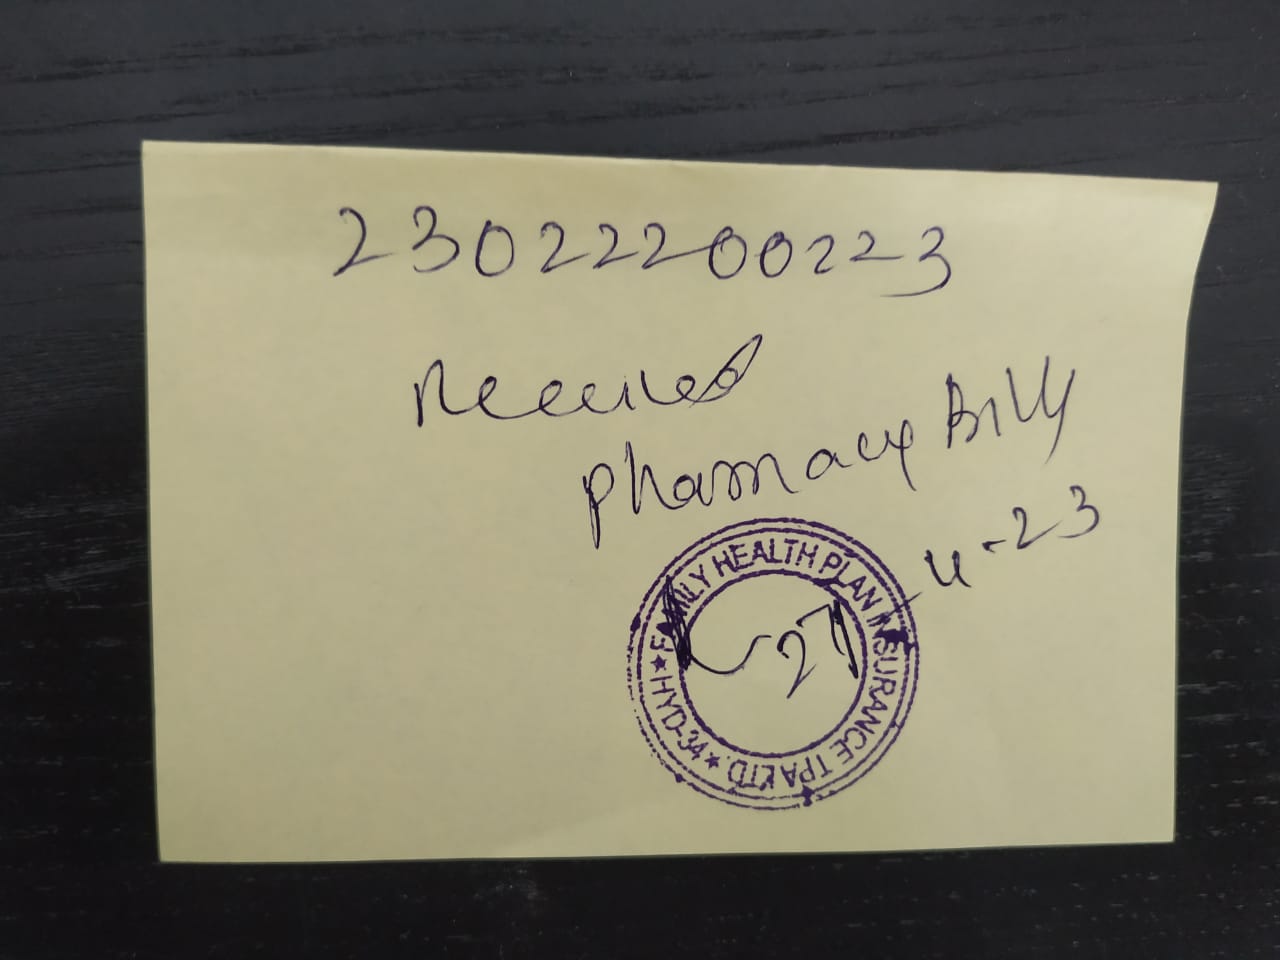 230222200223
Received
pharmacy Bills
27-4-23
FAMILY HEALTH PLAN INSURANCE TPA LTD. ★ HYD-34 ★